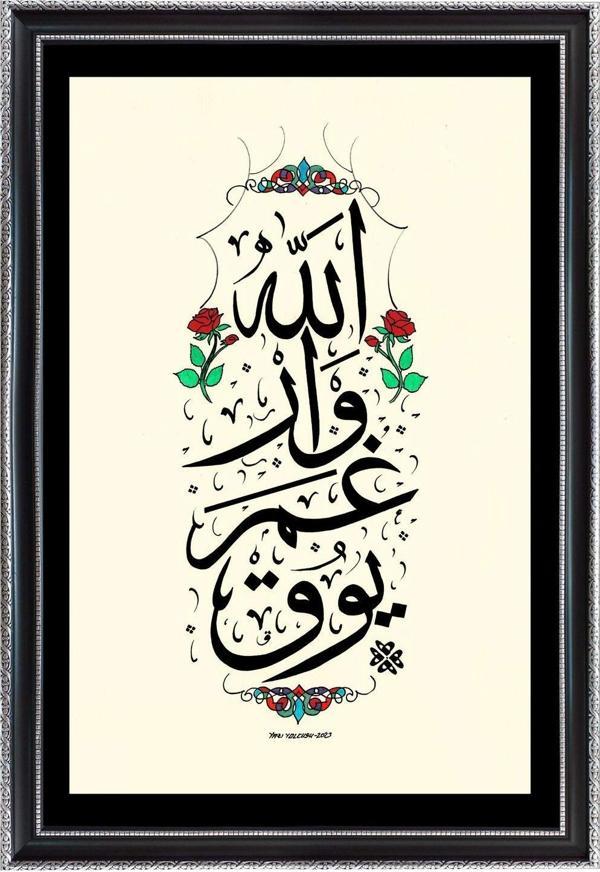 الله
وار
غم
يوق
YAZI YOLCUSU-2023